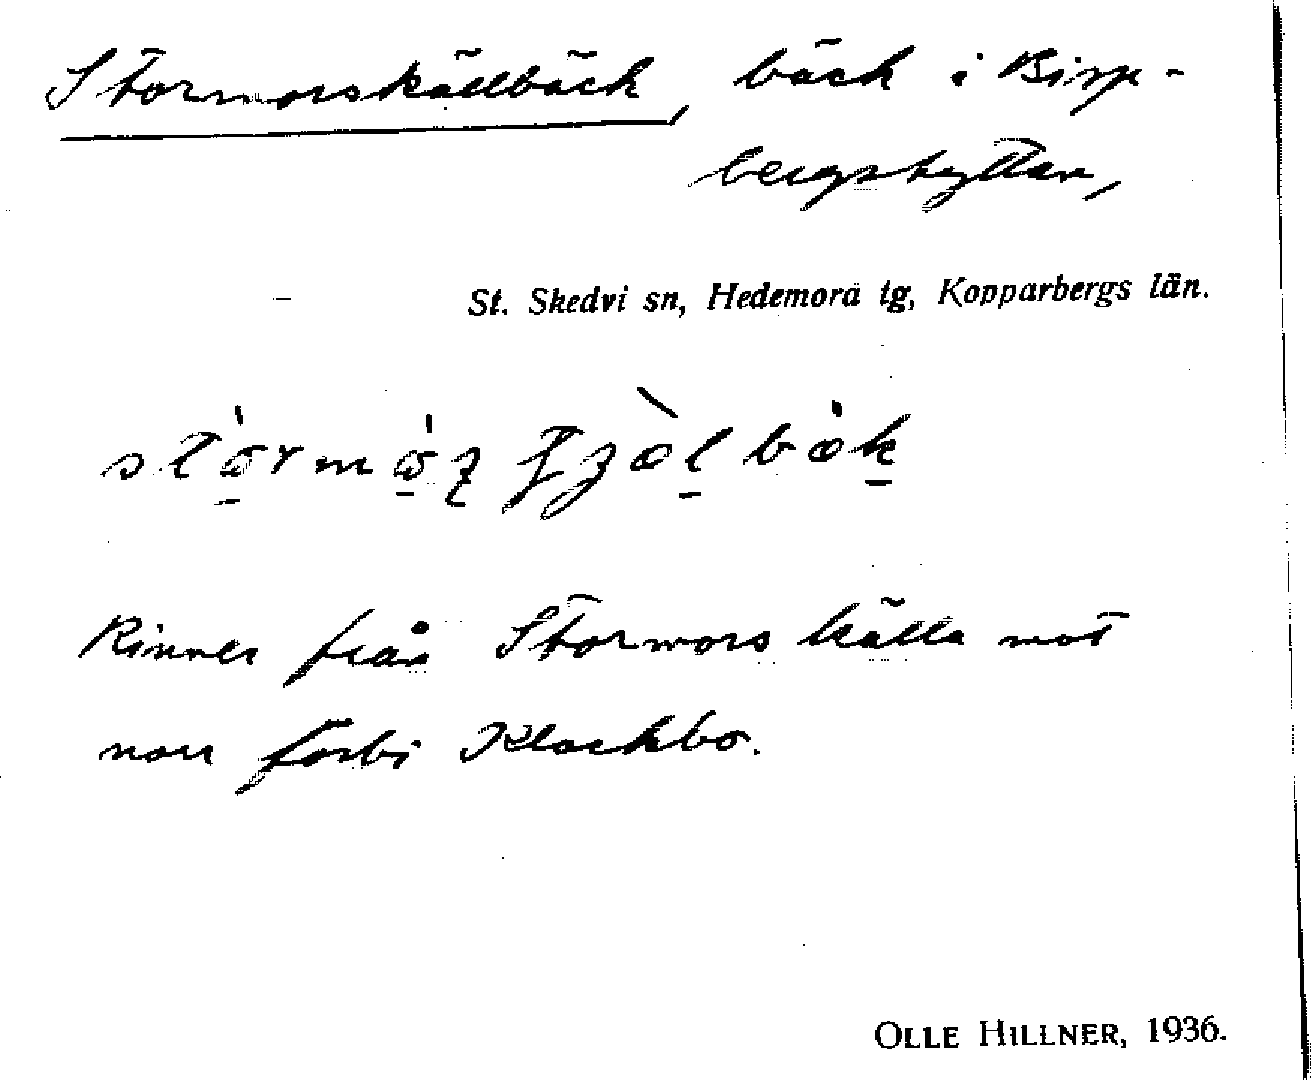 Stormorskällbäck, bäck i Bisp-
bergshyttan,
St. Skedvi sn, Hedemora tg, Kopparbergs län.
Rinner från Stormors källa mot
norr förbi Klockbo.
OLLE HILLNER, 1936.